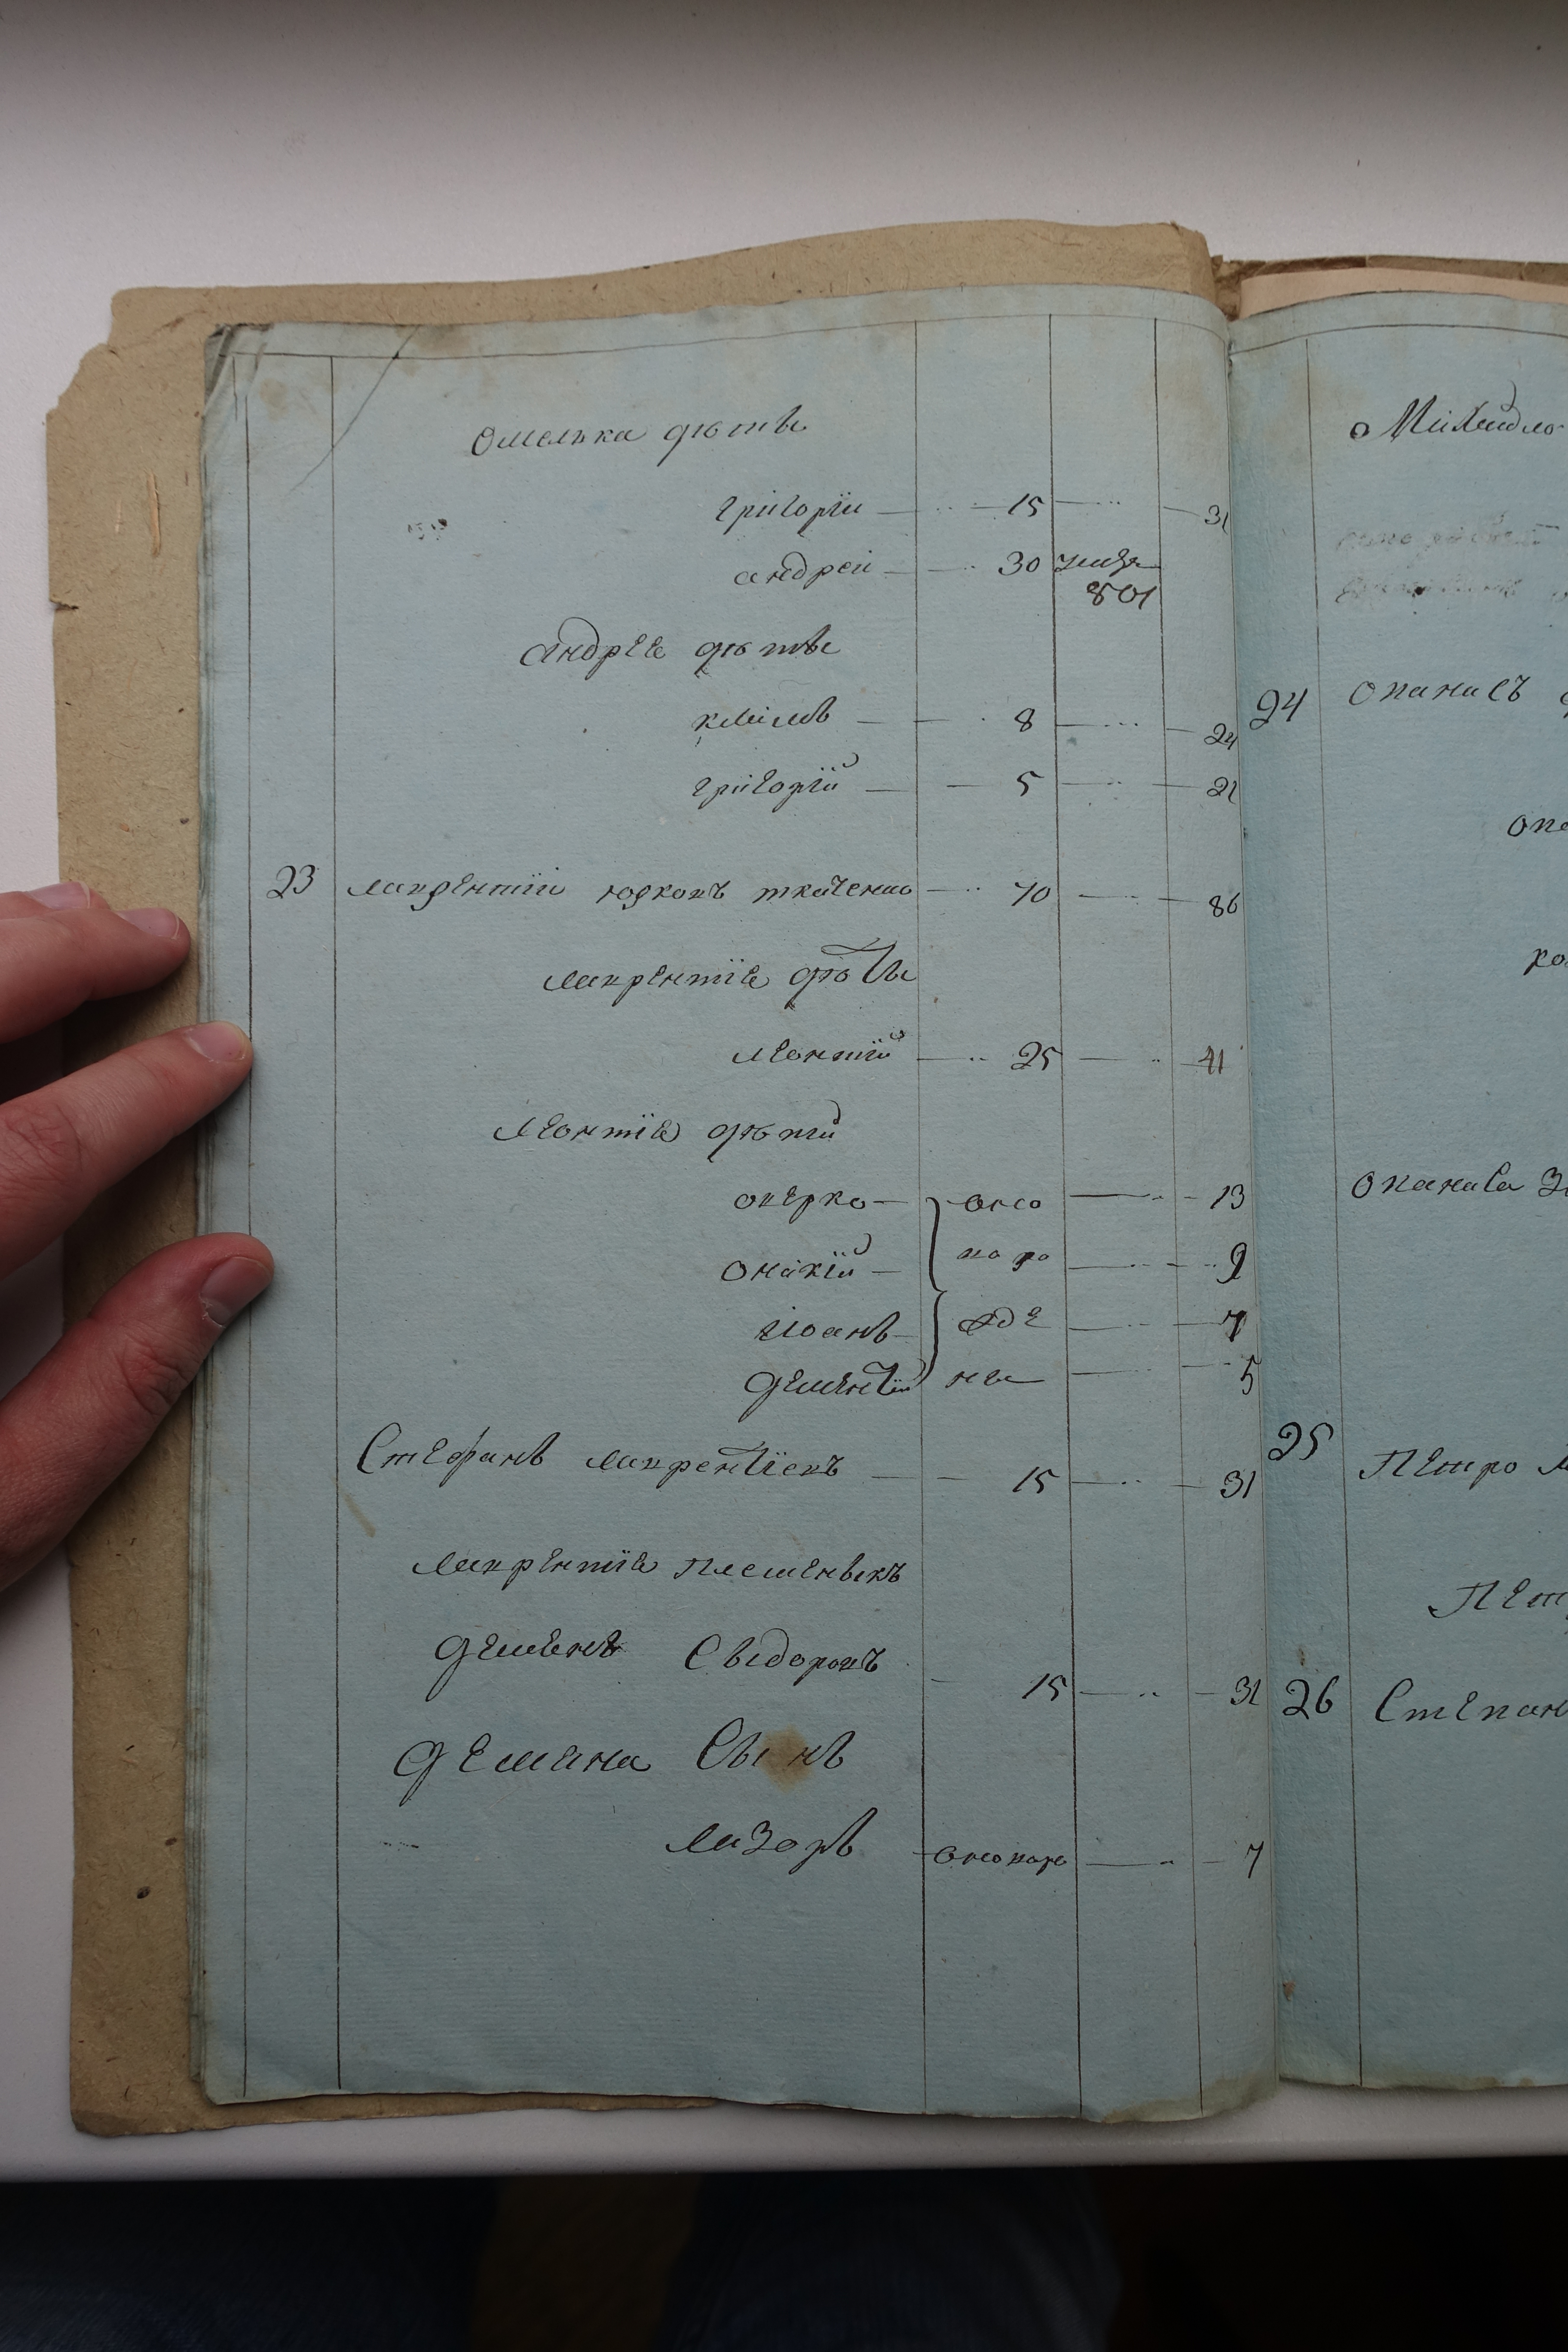 Омелька дѣти
григорїи — 15 — 31
андреи — 30 умре
801
Андрея дѣти
климъ — 8 — 24
григорїй — 5 — 21
23 лаврентїи юрковъ ткаченко — 70 — 86
лаврентїя дѣти
леонтїй — 25 — 41
Леонтїя дѣтий
оверко — оно — 13
Онакїй — во ро — 9
іоанъ — жде — 7
дементїй ны — 5
Стефанъ лаврентїевъ — 15 — 31
лаврентїя племеникъ
Демянъ Сыдоровъ — 15 — 31
Демяна Сынъ
лазоръ — оноворо — 7
Михайло
24 Опанасъ
опа
Опанаса
25 Петро
Пет
26 Степанъ